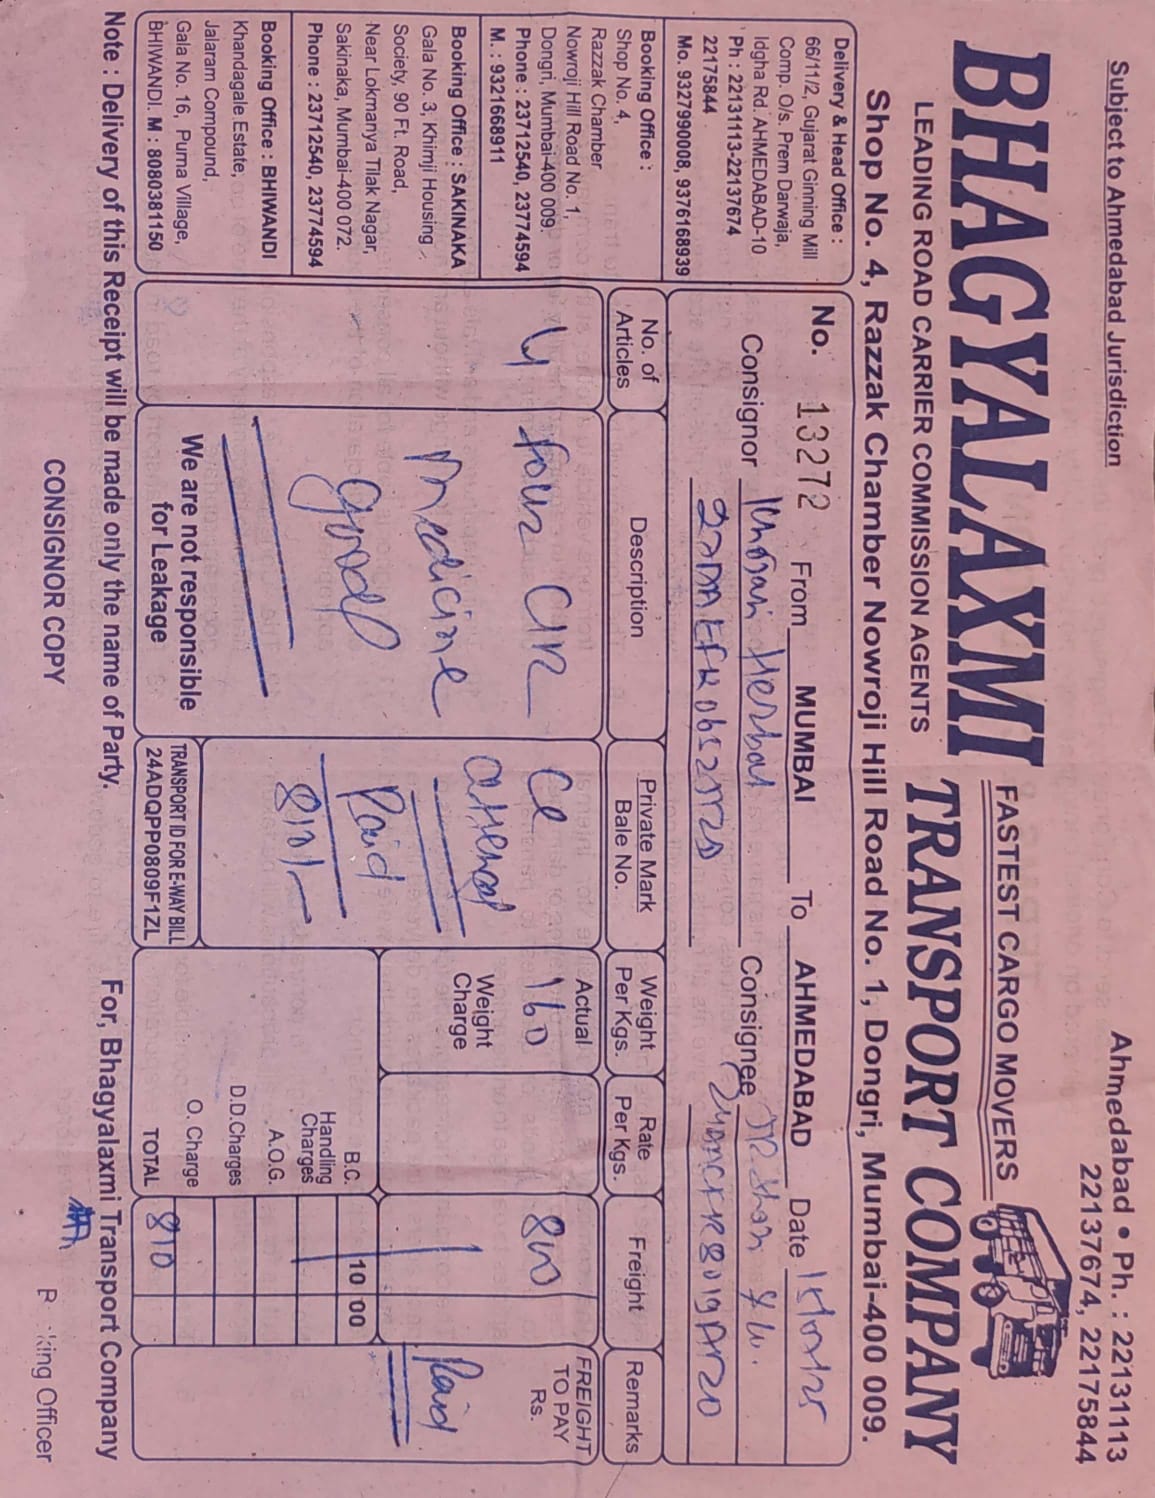 Subject to Ahmedabad Jurisdiction
Ahmedabad • Ph. : 22131113
22137674, 22175844
BHAGYALAXMI TRANSPORT COMPANY
FASTEST CARGO MOVERS
LEADING ROAD CARRIER COMMISSION AGENTS
Shop No. 4, Razzak Chamber Nowroji Hill Road No. 1, Dongri, Mumbai-400 009.
Delivery & Head Office :
66/11/2, Gujarat Ginning Mill
Comp. O/s. Prem Darwaja,
Idgha Rd. AHMEDABAD-10
Ph : 22131113-22137674
22175844
Mo. 9327990008, 9376168939
Booking Office :
Shop No. 4,
Razzak Chamber
Nowroji Hill Road No. 1,
Dongri, Mumbai-400 009.
Phone : 23712540, 23774594
M. : 9321668911
Booking Office : SAKINAKA
Gala No. 3, Khimji Housing
Society, 90 Ft. Road,
Near Lokmanya Tilak Nagar,
Sakinaka, Mumbai-400 072.
Phone : 23712540, 23774594
Booking Office : BHIWANDI
Khandagale Estate,
Jalaram Compound,
Gala No. 16, Purna Village,
BHIWANDI. M : 8080381150
No. 13272 From MUMBAI To AHMEDABAD Date
Consignor Herbal Consignee
No. of Articles Description Private Mark Bale No. Weight Per Kgs. Rate Per Kgs. Freight Remarks
4 four Medicine good
We are not responsible
for Leakage
Paid
810/-
TRANSPORT ID FOR E-WAY BILL
24ADQPP0809F1ZL
Actual
160
Weight
Charge
800
FREIGHT
TO PAY
Rs.
Paid
B.C. 10 00
Handling
Charges
A.O.G.
D.D.Charges
O. Charge
TOTAL 810
Note : Delivery of this Receipt will be made only the name of Party.
For, Bhagyalaxmi Transport Company
CONSIGNOR COPY
Officer